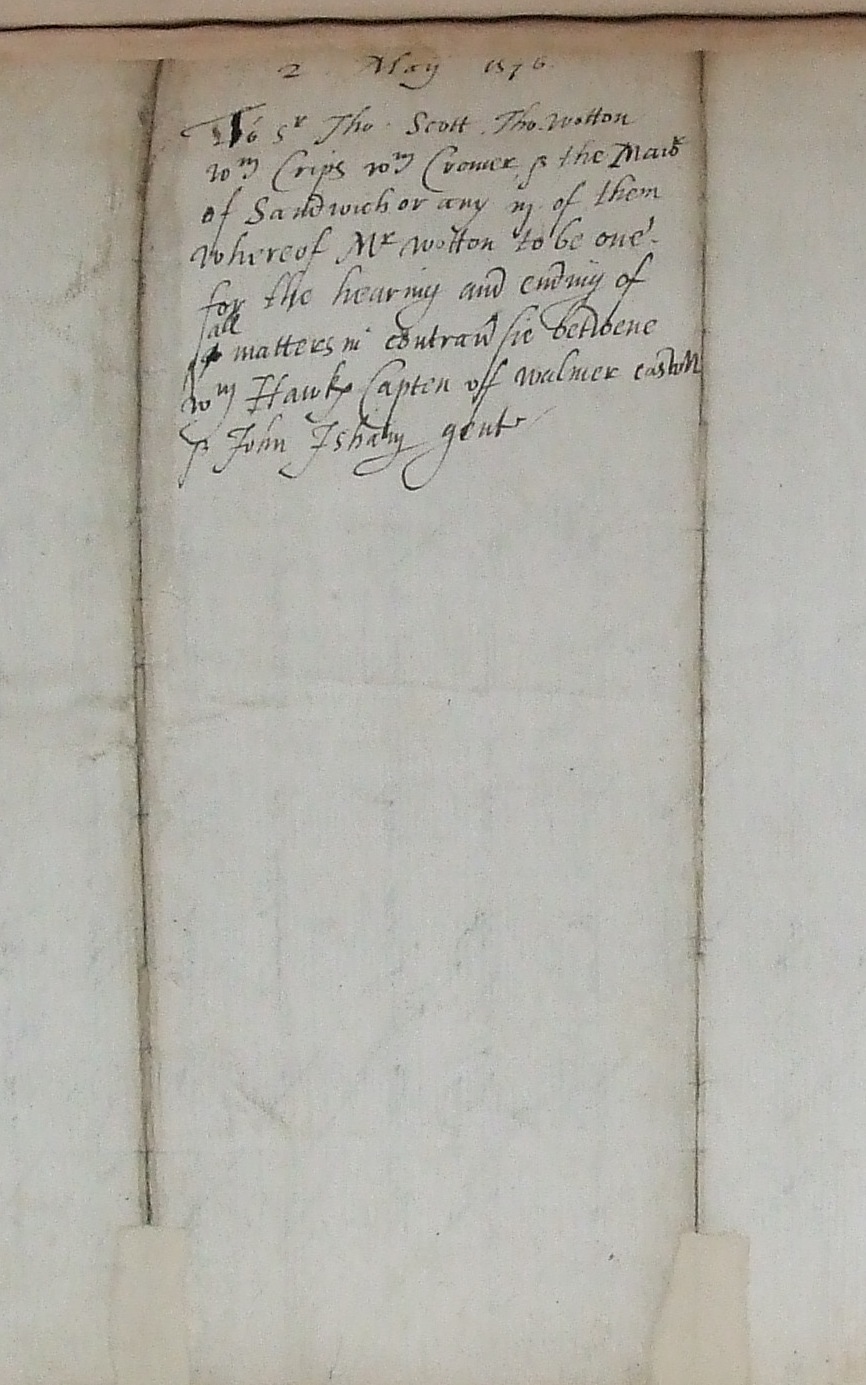 2 May 1576
To Sr Tho. Scott. Tho. Wotton
Wm Crips Wm Cromer & the Maior
of Sandwich or any iij of them
whereof Mr Wotton to be one
for the hearing and ending of
all
matters in contrauersie betwene
Wm Hawks Capten off Walmer castell
& John Isham gent